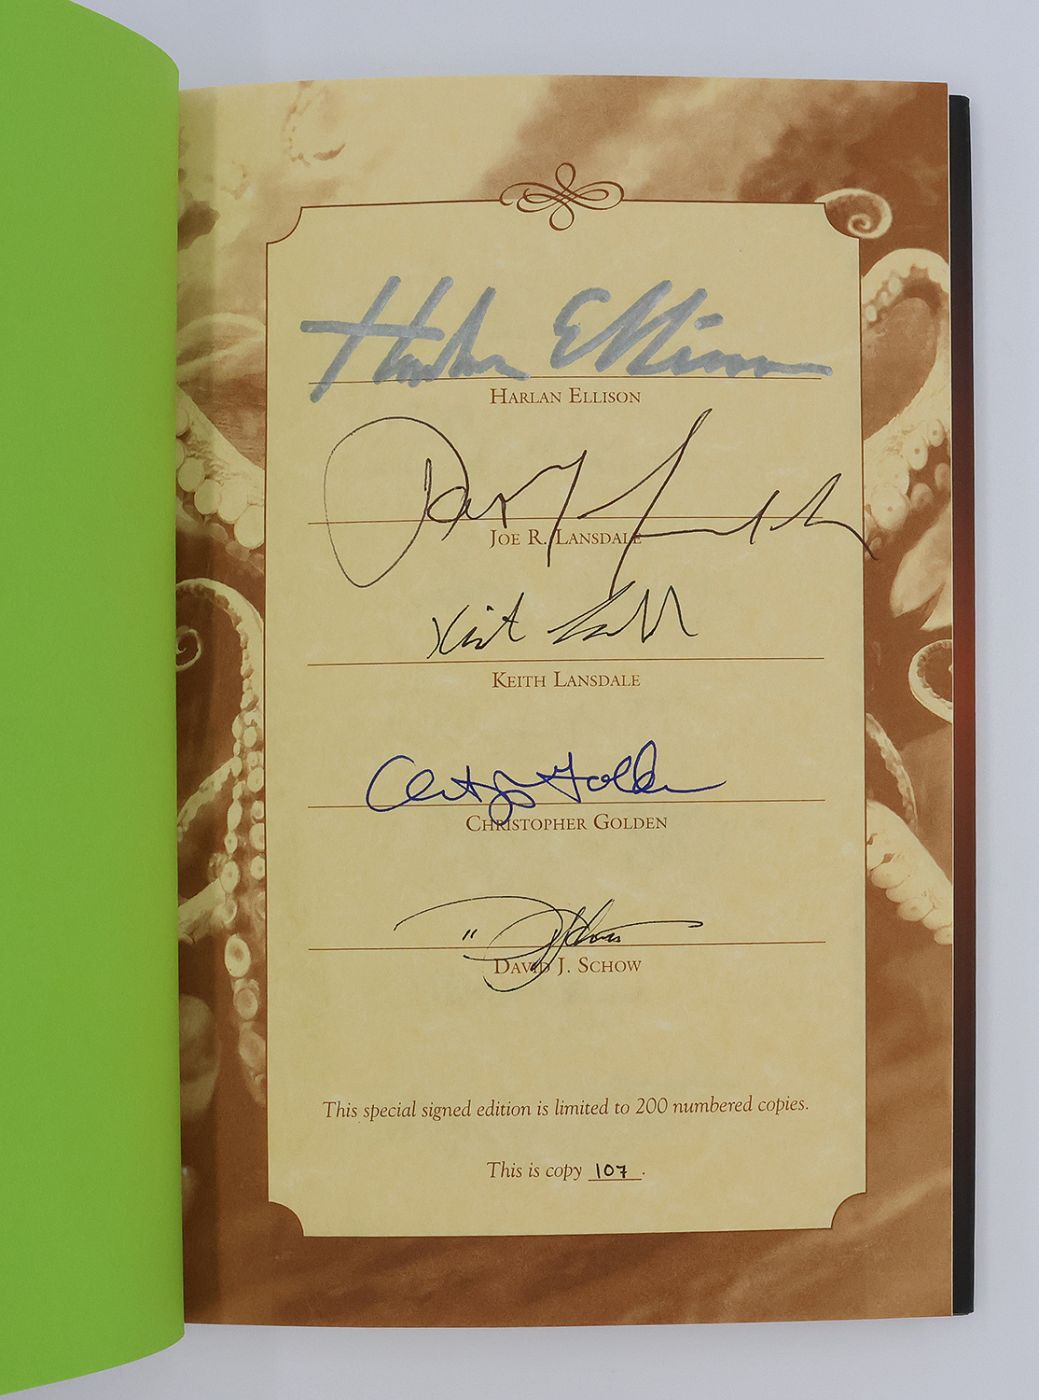 Harlan Ellison
HARLAN ELLISON
JOE R. LANSDALE
KEITH LANSDALE
Christopher Golden
CHRISTOPHER GOLDEN
DAVID J. SCHOW
This special signed edition is limited to 200 numbered copies.
This is copy 107.